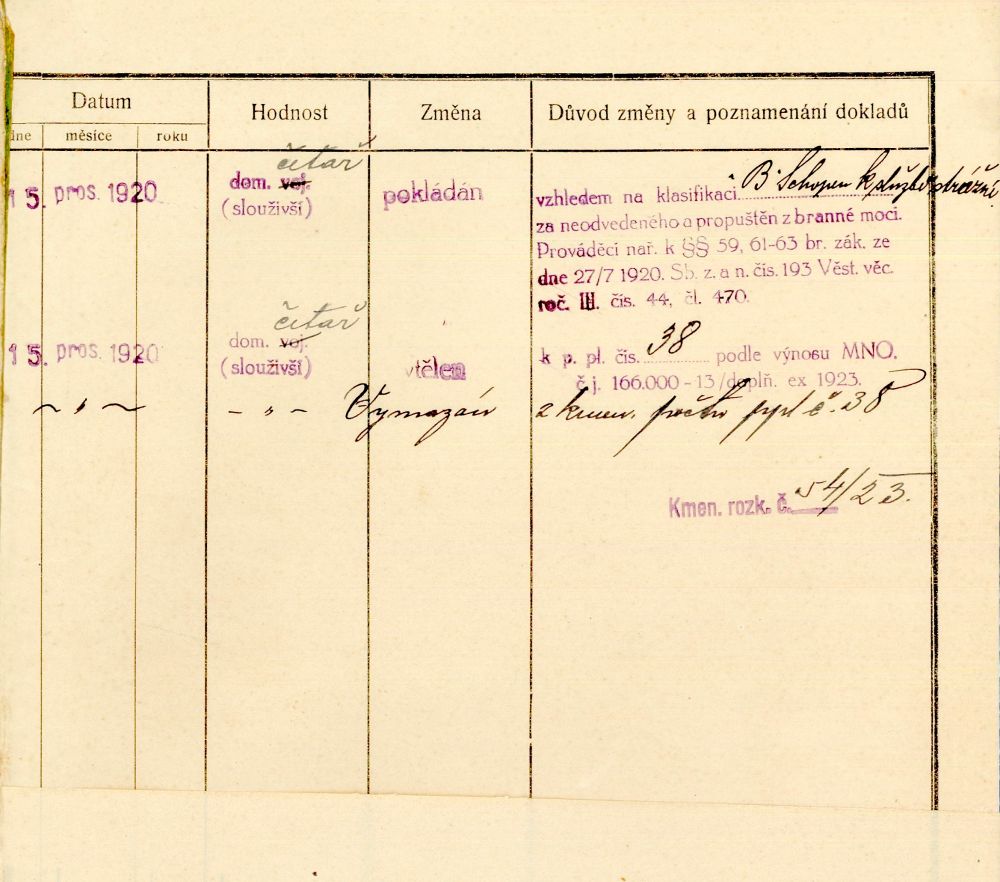 Datum Hodnost Změna Důvod změny a poznamenání dokladů
dne měsíce roku
četař
15. pros. 1920 dom. voj. pokládán vzhledem na klasifikaci "B" Schopen k službě strážní
(sloužívší) za neodvedeného a propuštěn z branné moci.
Prováděcí nař. k §§ 59, 61-63 br. zák. ze
dne 27/7 1920. Sb. z. a n. čís. 193 Věst. věc.
roč. III. čís. 44, čl. 470.
četař
15. pros. 1920 dom. voj. vtělen k p. pl. čís. 38 podle výnosu MNO.
(sloužívší) č j. 166.000-13/doplň. ex 1923.
~ " ~ - " - Vymazán z kmen. počtu ppl č. 38
Kmen. rozk. č. 54/23.